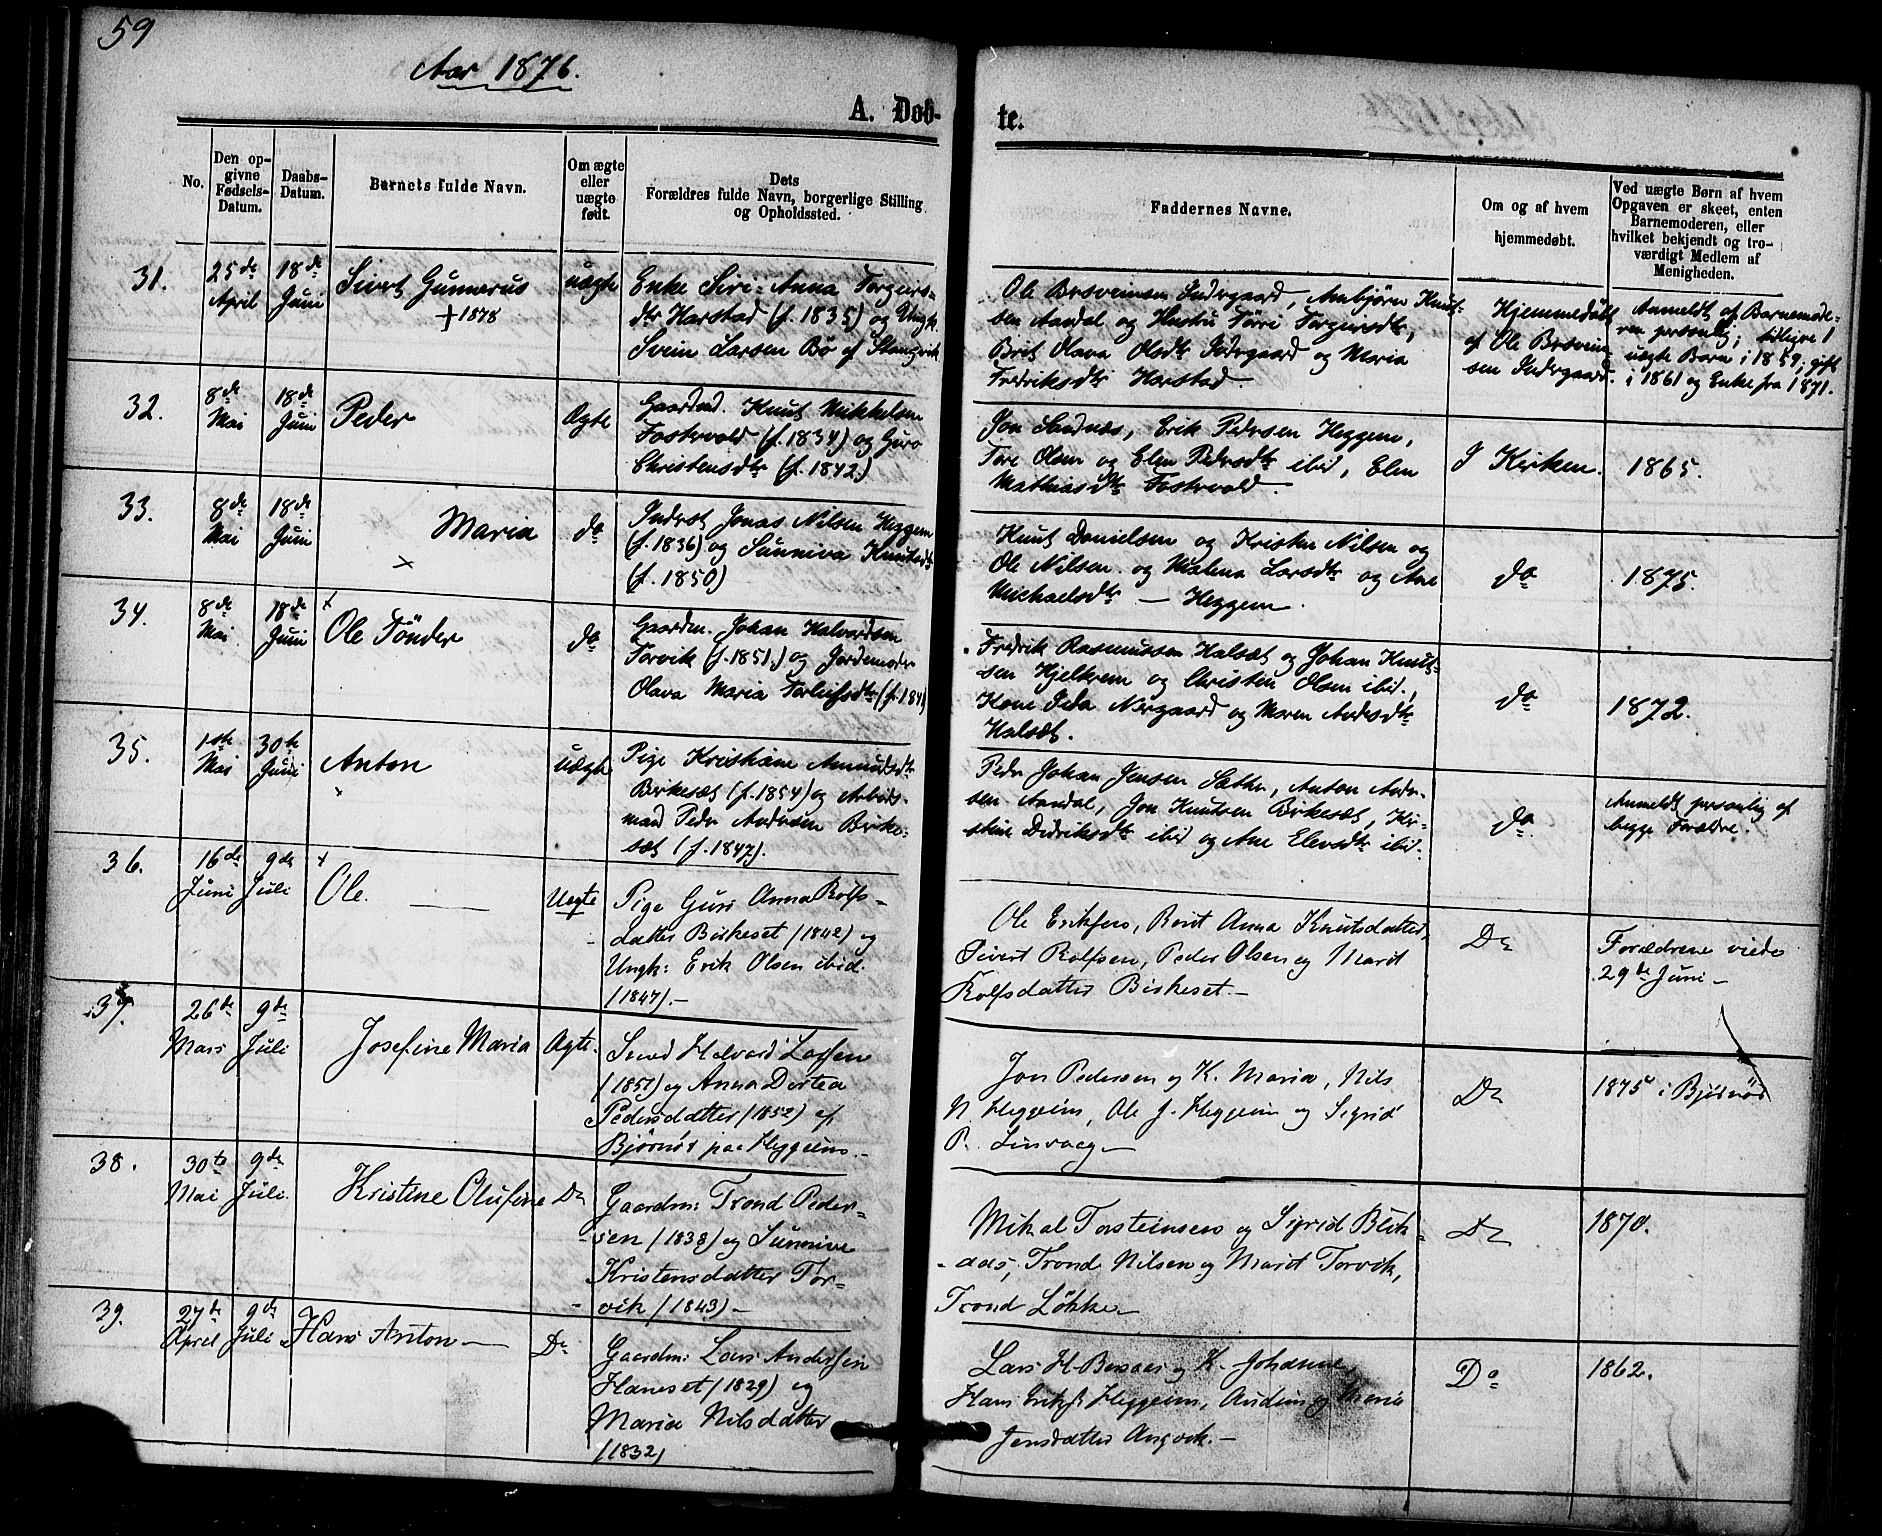 59
Aar 1876.
A. Døb-
te.
No.
Den op-
givne
Fødsels-
Datum.
Daabs-
Datum.
Barnets fulde Navn.
Om ægte
eller
uægte
født.
Dets
Forældres fulde Navn, borgerlige Stilling
og Opholdssted.
Faddernes Navne.
Om og af hvem
hjemmedøbt.
Ved uægte Børn af hvem
Opgaven er skeet, enten
Barnemoderen, eller
hvilket bekjendt og tro-
værdigt Medlem af
Menigheden.
31.
25de
April
18de
Juni
Sivert Gunnerus
+ 1878
uægte
Enke Siri-Anna Torgers-
dtr Harstad (f. 1835) og Ungk.
Svein Larsen Bø af Stangvik
Ole Bosveinsen Indergaard, Arnbjørn Knut-
sen Aandal og Hustru Torgersdtr,
Brit Olava Olsdtr Indergaard og Maria
Fredriksdtr Harstad
Hjemmedøbt
af Ole Bosvein-
sen Indergaard.
Anmeldt af Barnemode-
ren personlig; tidligre 1
uægte Barn i 1859; gift
i 1861 og Enke fra 1871.
32.
8de
Mai
18de
Juni
Peder
Ægte
Gaardmd. Knut Mikkelsen
Fostervold (f. 1834) og Guro
Christensdtr (f. 1842)
Jon Sandnæs, Erik Pedersen Heggem,
Tore Olsen og Elen Pedersdtr ibid, Elen
Mathiasdtr Fostervold.
I Kirken.
1865.
33.
8de
Mai
18de
Juni
Maria
×
do
Inderst Jonas Nilsen Heggem
(f. 1836) og Sunniva Knutsdtr
(f. 1850)
Knut Danielsen og Kristen Nilsen og
Ole Nilsen og Malena Larsdtr og Ane
Michaelsdtr — Heggem.
do
1875.
34.
8de
Mai
18de
Juni
+
Ole Tønder
do
Gaardm. Johan Halvardsen
Torvik (f. 1851.) og Jordemoder
Olava Maria Torleifsdtr (f. 1841)
Fredrik Rasmussen Halsæt og Johan Knut-
sen Hjelkrem og Christen Olsen ibid.,
Kone Ida Nergaard og Maren Andersdtr
Halsæt.
do
1872.
35.
1ste
Mai
30te
Juni
Anton
×
uægte
Pige Kristiane Amundsdtr
Birkesæt (f. 1854) og Arbeids-
mand Peder Andersen Birke-
sæt (f. 1847).
Peder Johan Jensen Sæther, Anton Ander-
sen Aandal, Jon Knutsen Birkesæt, Kir-
stine Didriksdtr ibid og Ane Elevsdtr ibid.
do
Anmeldt personlig af
begge Forældre.
36.
16de
Juni
9de
Juli
+
Ole. —
Uegte
Pige Guri Anna Rolfs-
datter Birkeset (1842) og
Ungk: Erik Olsen ibid.
(1847).—
Ole Eriksen, Berit Anna Knutsdatter,
Sivert Rolfsen, Peder Olsen og Marit
Rolfsdatter Birkeset.—
Do
Forældrene viede
29de Juni —
37.
26de
Mars
9de
Juli
Josefine Maria
Ægte.
Halvard Larsen
(1851) og Anna Dortea
Pedersdatter (1852) af
Bjørnør paa Heggeim.—
Jon Pedersen og K. Maria, Nils
N. Heggeim, Ole J. Heggeim og Sigrid
P. Linvaag—
Do
1875 i Bjørnør
38.
30te
Mai
9de
Juli.
Kristine Olufine
Do
Gaardm: Trond Peder-
sen (1838) og Sunnive
Kristensdatter Tor-
vik (1843)—
Mikal Torsteinsen og Sigrid Blik-
aas, Trond Nilsen og Marit Torvik,
Trond Løkken
Do
1870.
39.
27de
April
9de
Juli
Hans Anton —
Do
Gaardm: Lars Andersen
Haneset (1829) og
Maria Nilsdatter
(1832)
Lars H. og K. Johanne,
Hans Eriks. Heggeim, Audun og Maria
Jensdatter Angvik.—
Do
1862.